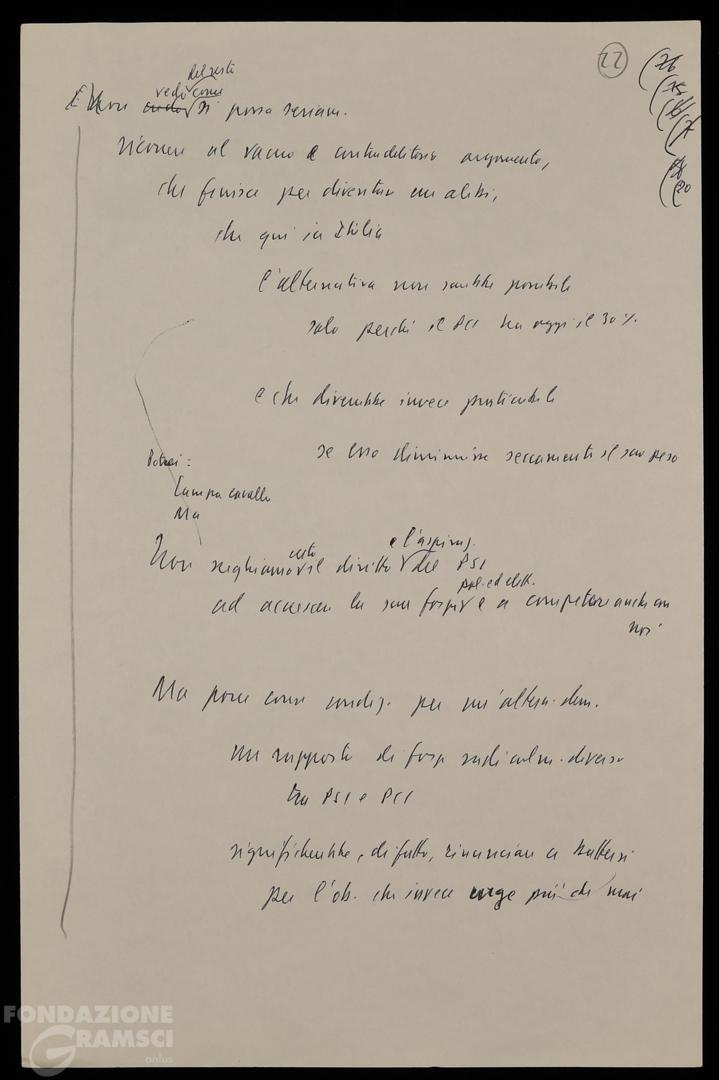 22
del resto
vedi come
E non si possa seriam.
ricorrere al vacuo e contraddittorio argomento,
che finisce per diventar un alibi,
che qui in Italia
l'alternativa non sarebbe possibile
solo perché il PCI ha oggi il 30%.
e che diverrebbe invece praticabile
se esso diminuisse seccamente il suo peso
Potrei =
Campa cavallo
Ma
certo e l'aspiraz.
Non neghiamo il diritto del PSI
pol. ed elett.
ad accrescere la sua forza e a competere anche con
noi
Ma porre come condiz. per un'altern. dem.
un rapporto di forza radicalm. diverso
tra PSI e PCI
significherebbe, di fatto, rinunciare a battersi
per l'ob. che invece urge più di mai
FONDAZIONE
GRAMSCI
onlus